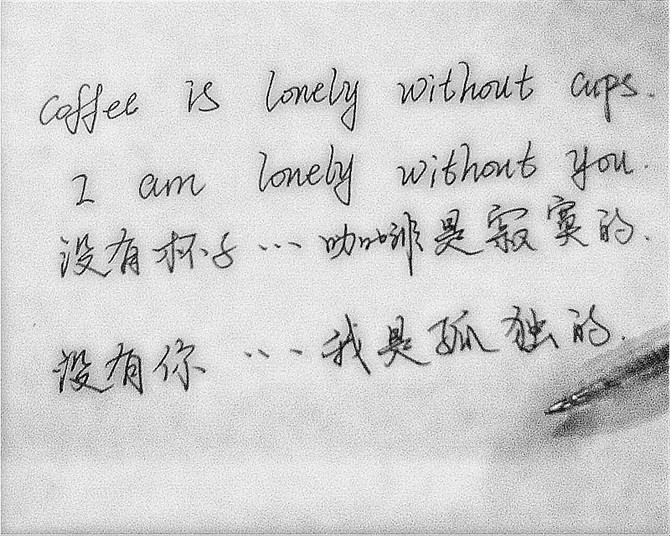 Coffee is lonely without cups.
I am lonely without you.
没有杯子…咖啡是寂寞的.
没有你…我是孤独的.